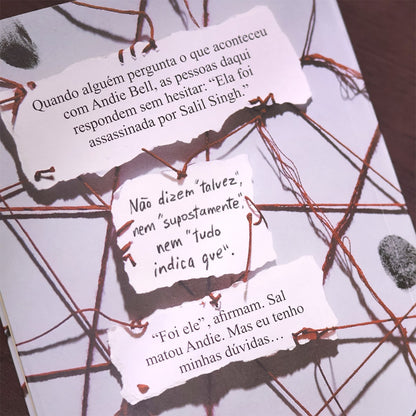 Quando alguém pergunta o que aconteceu
com Andie Bell, as pessoas daqui
respondem sem hesitar: “Ela foi
assassinada por Salil Singh.”
Não dizem “talvez”,
nem “supostamente”,
nem “tudo
indica que”.
“Foi ele”, afirmam. Sal
matou Andie. Mas eu tenho
minhas dúvidas…